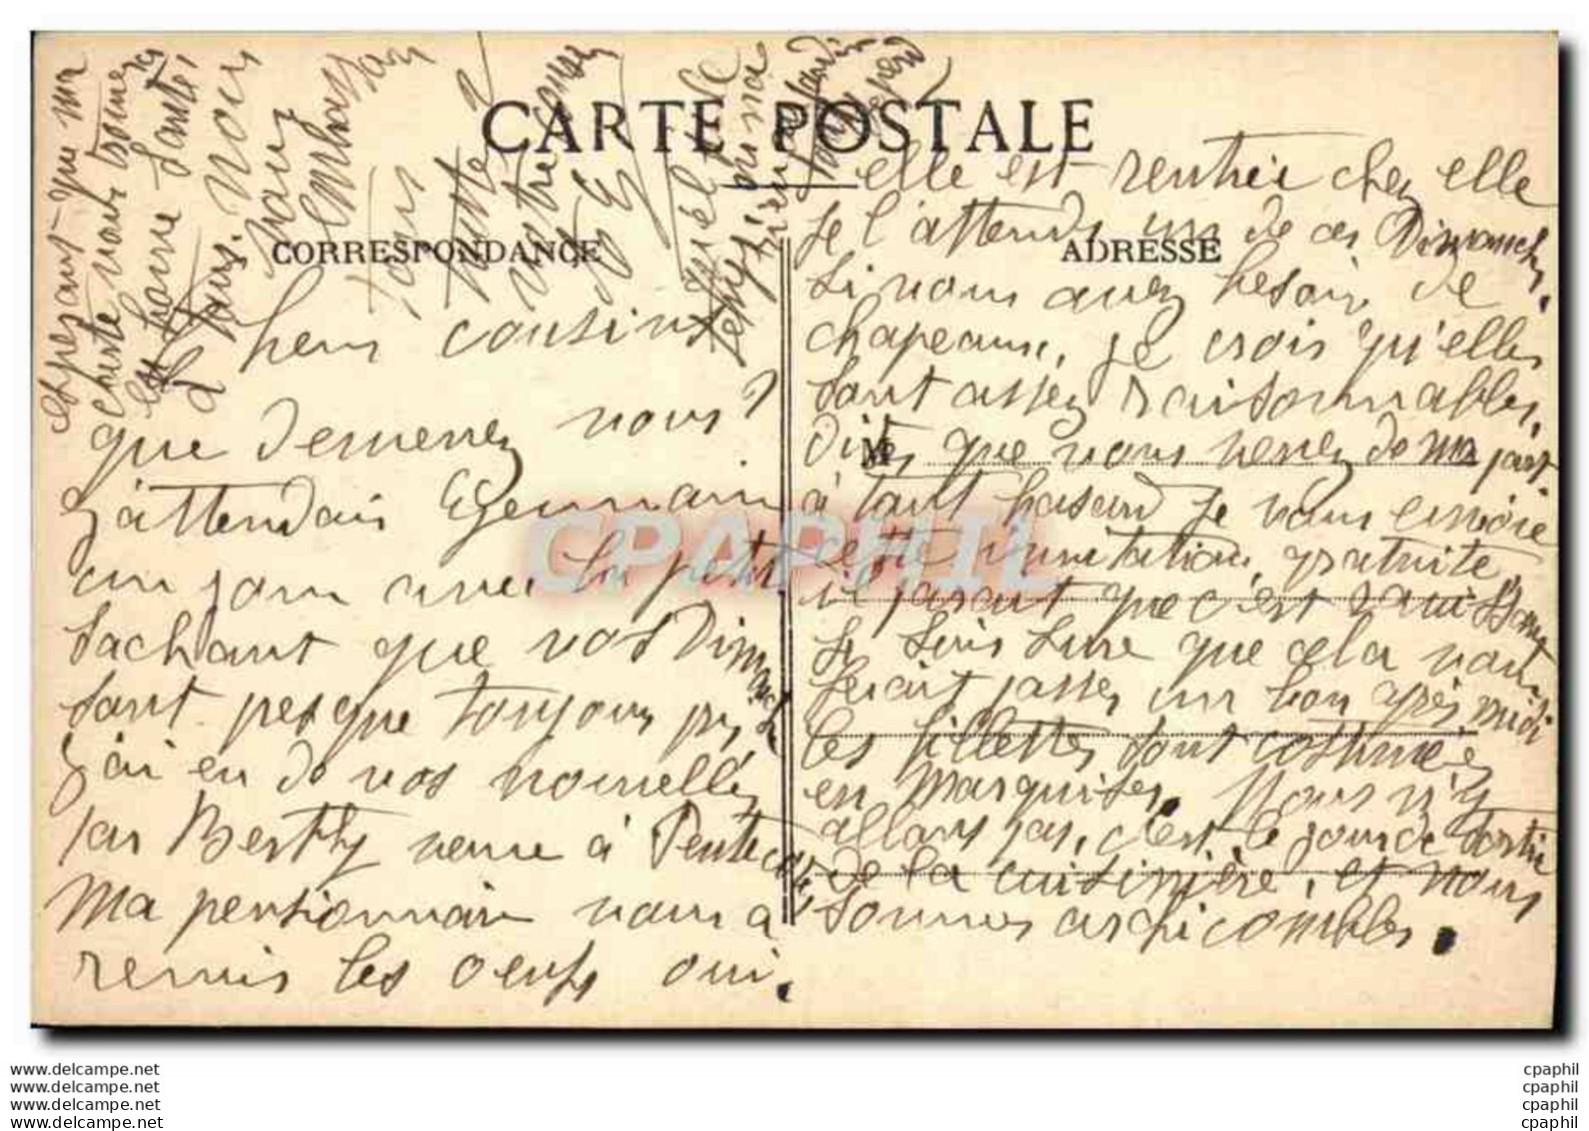 CARTE POSTALE
CORRESPONDANCE
ADRESSE
Chers cousins
que devenez vous?
J'attendais Germain
un jour avec le petit
sachant que vos Dimanches
sont presque toujours pris
J'ai eu de vos nouvelles
par Berthy venue à Pentecôte
Ma pensionnaire vous a
remis les oeufs oui.
elle est rentrée chez elle
Je l'attends un de ces Dimanches.
Si vous avez besoin de
chapeaux, je crois qu'elles
sont assez raisonnables,
dites que vous venez de ma part
M
à tout hasard je vous envoie
cette invitation, gratuite
il parait que c'est ravissant
Je suis sure que cela vous
ferait passer un bon après midi
les fillettes sont costumées
en Marquises. Nous n'y
allons pas, c'est le jour de sortie
de la cuisinière, et nous
sommes archicombles.
espérant que ma
carte vous trouvera
en bonne santé,
tous. Nous
vous
embrassons
tous
votre cousine
CPAPHIL
www.delcampe.net
www.delcampe.net
www.delcampe.net
www.delcampe.net
cpaphil
cpaphil
cpaphil
cpaphil